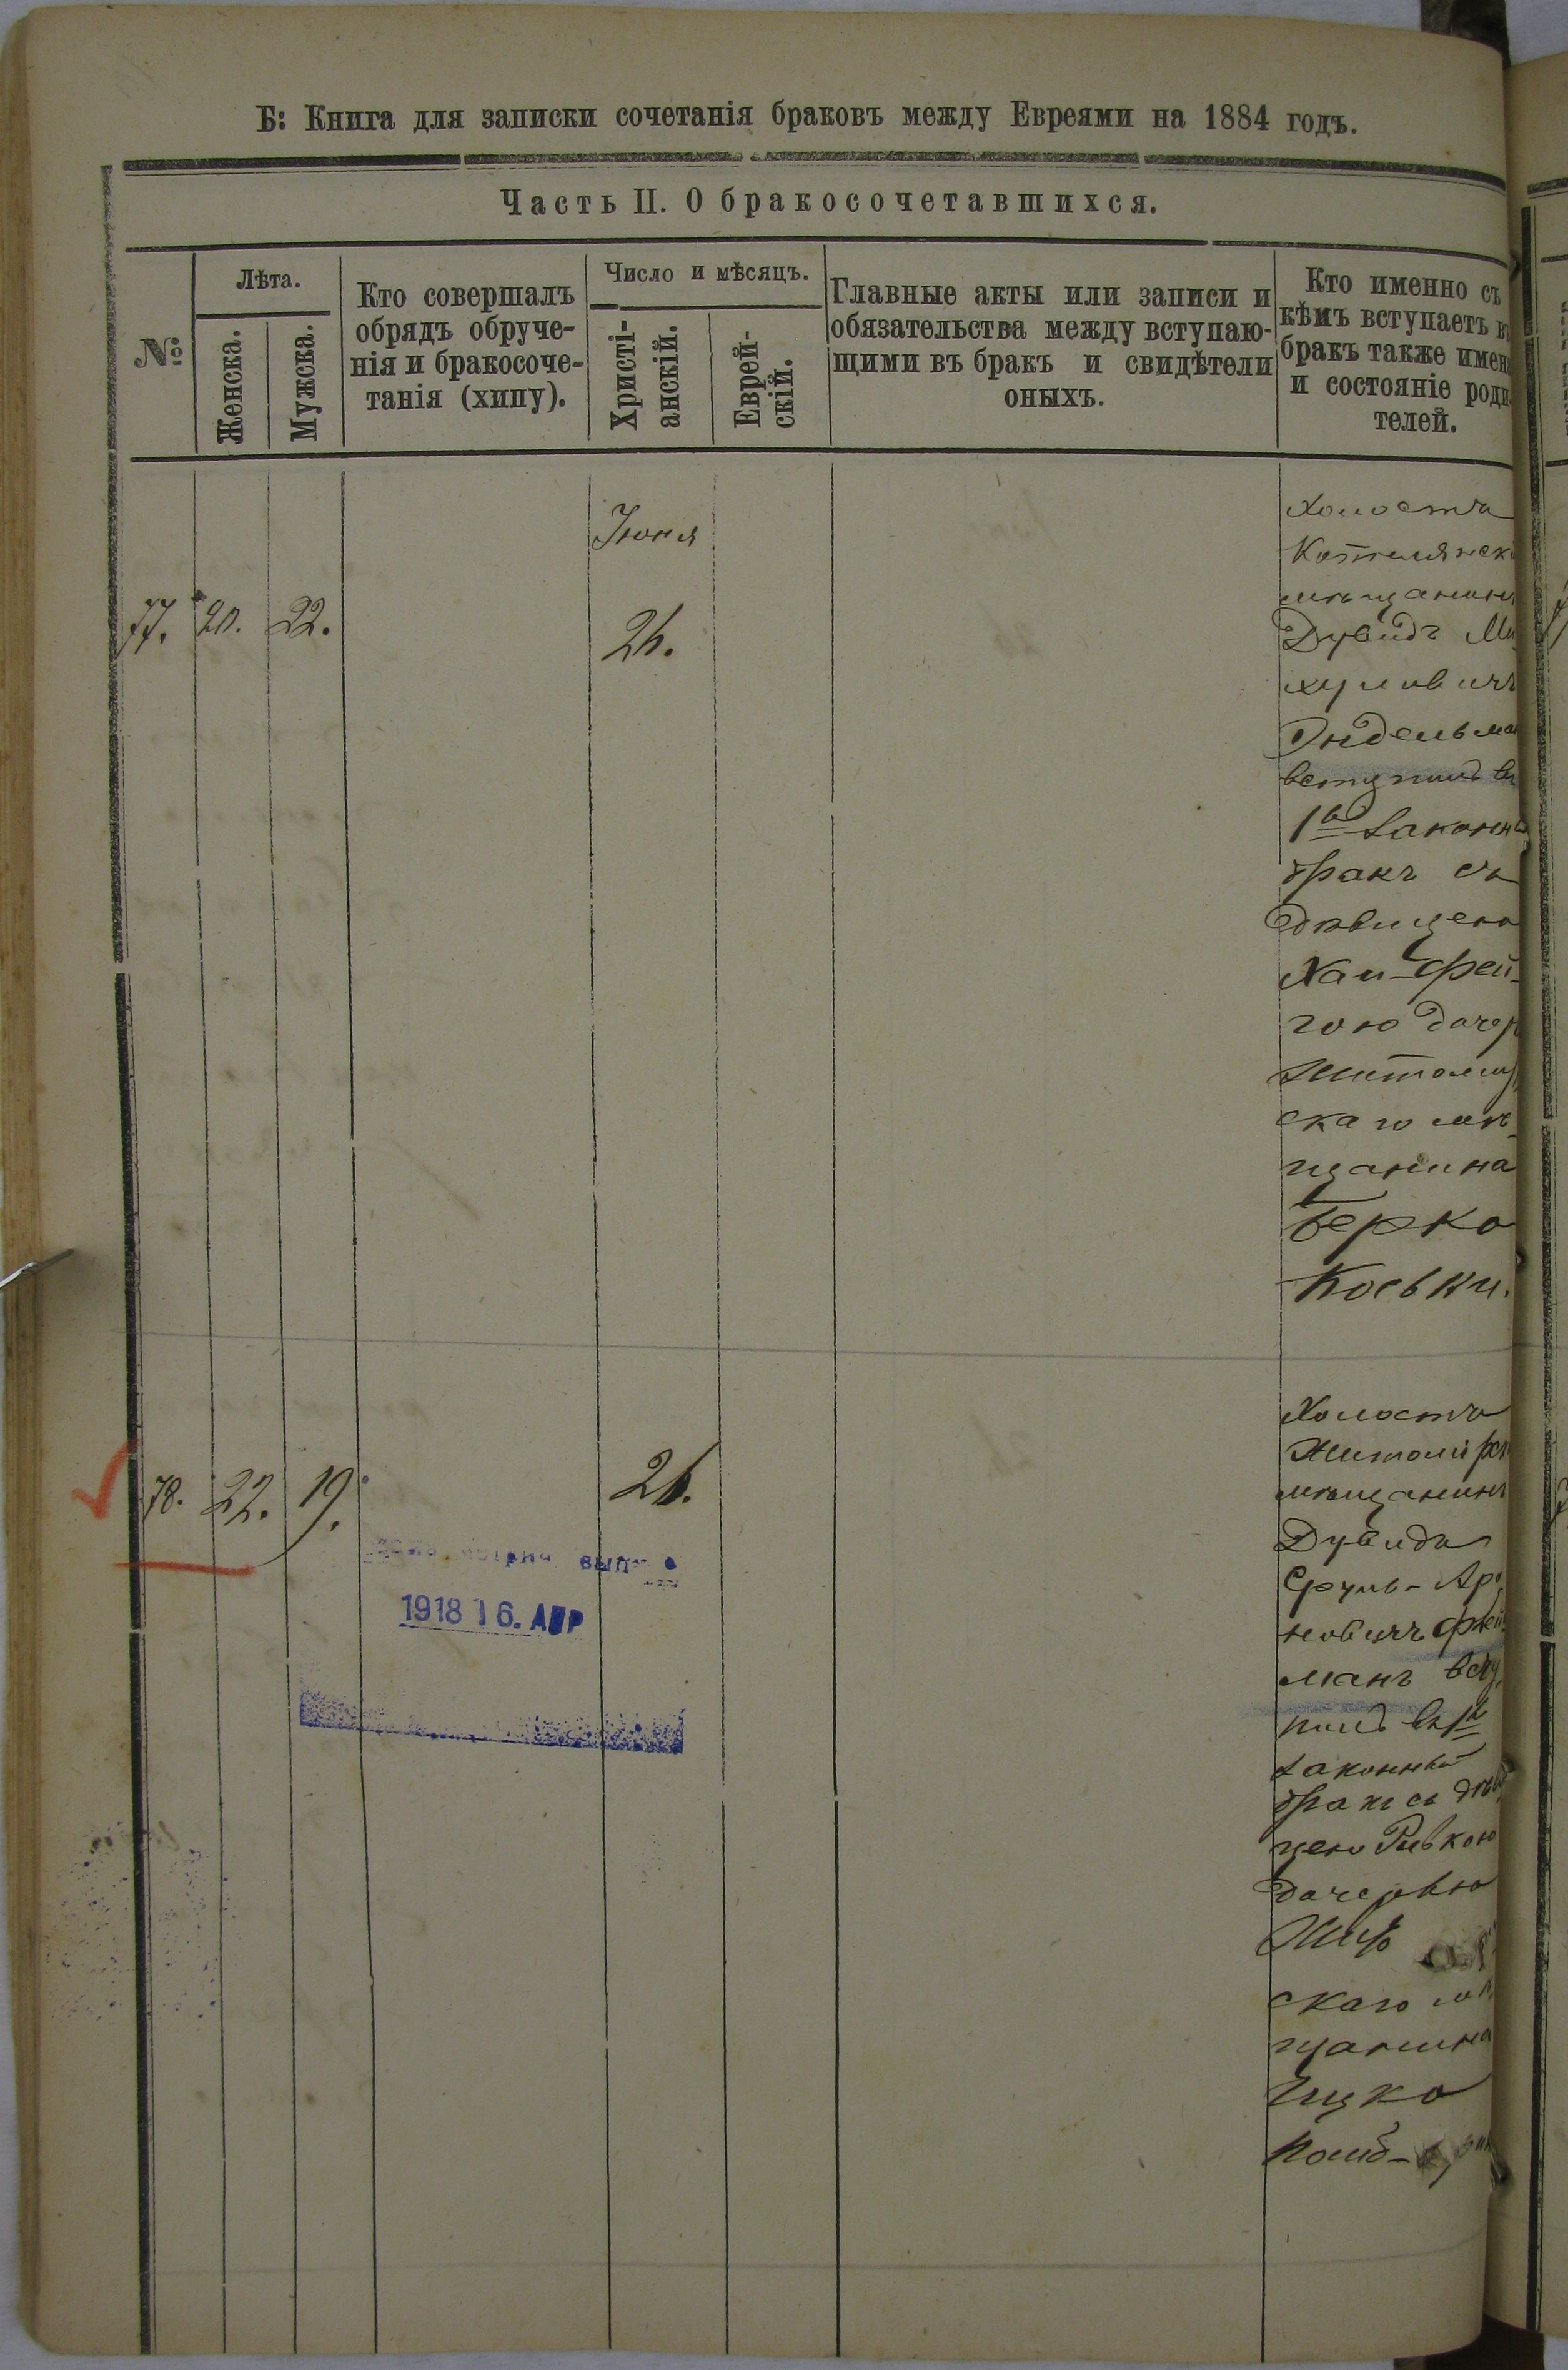 Б: Книга для записки сочетанія браковъ между Евреями на 1884 годъ.
Часть II. О бракосочетавшихся.
№
Лѣта.
Женска.
Мужска.
Кто совершалъ
обрядъ обруче-
нія и бракосоче-
танія (хипу).
Число и мѣсяцъ.
Христі-
анскій.
Еврей-
скій.
Главные акты или записи и
обязательства между вступаю-
щими въ бракъ и свидѣтели
оныхъ.
Кто именно съ
кѣмъ вступаетъ въ
бракъ также имен
и состояніе роди
телей.
77. 20. 22.
Іюня
26.
Холостъ
Котелянск
мѣщанинъ
Дувидъ Ми
хулевичъ
Эндельма
вступилъ въ
1й законны
бракъ съ
дѣвицею
Хаи-Фей-
гою дочер
Житомір
скаго мѣ-
щанина
Берко
78. 22. 19.
26.
1918 16. АПР
Холостъ
Житомірск
мѣщанинъ
Дувидъ
Сруль-Аро
новичъ
манъ всту
пилъ въ 1й
законный
бракъ съ дѣв
цею Ривкою
дочерью
скаго мѣ
щанина
Ицко